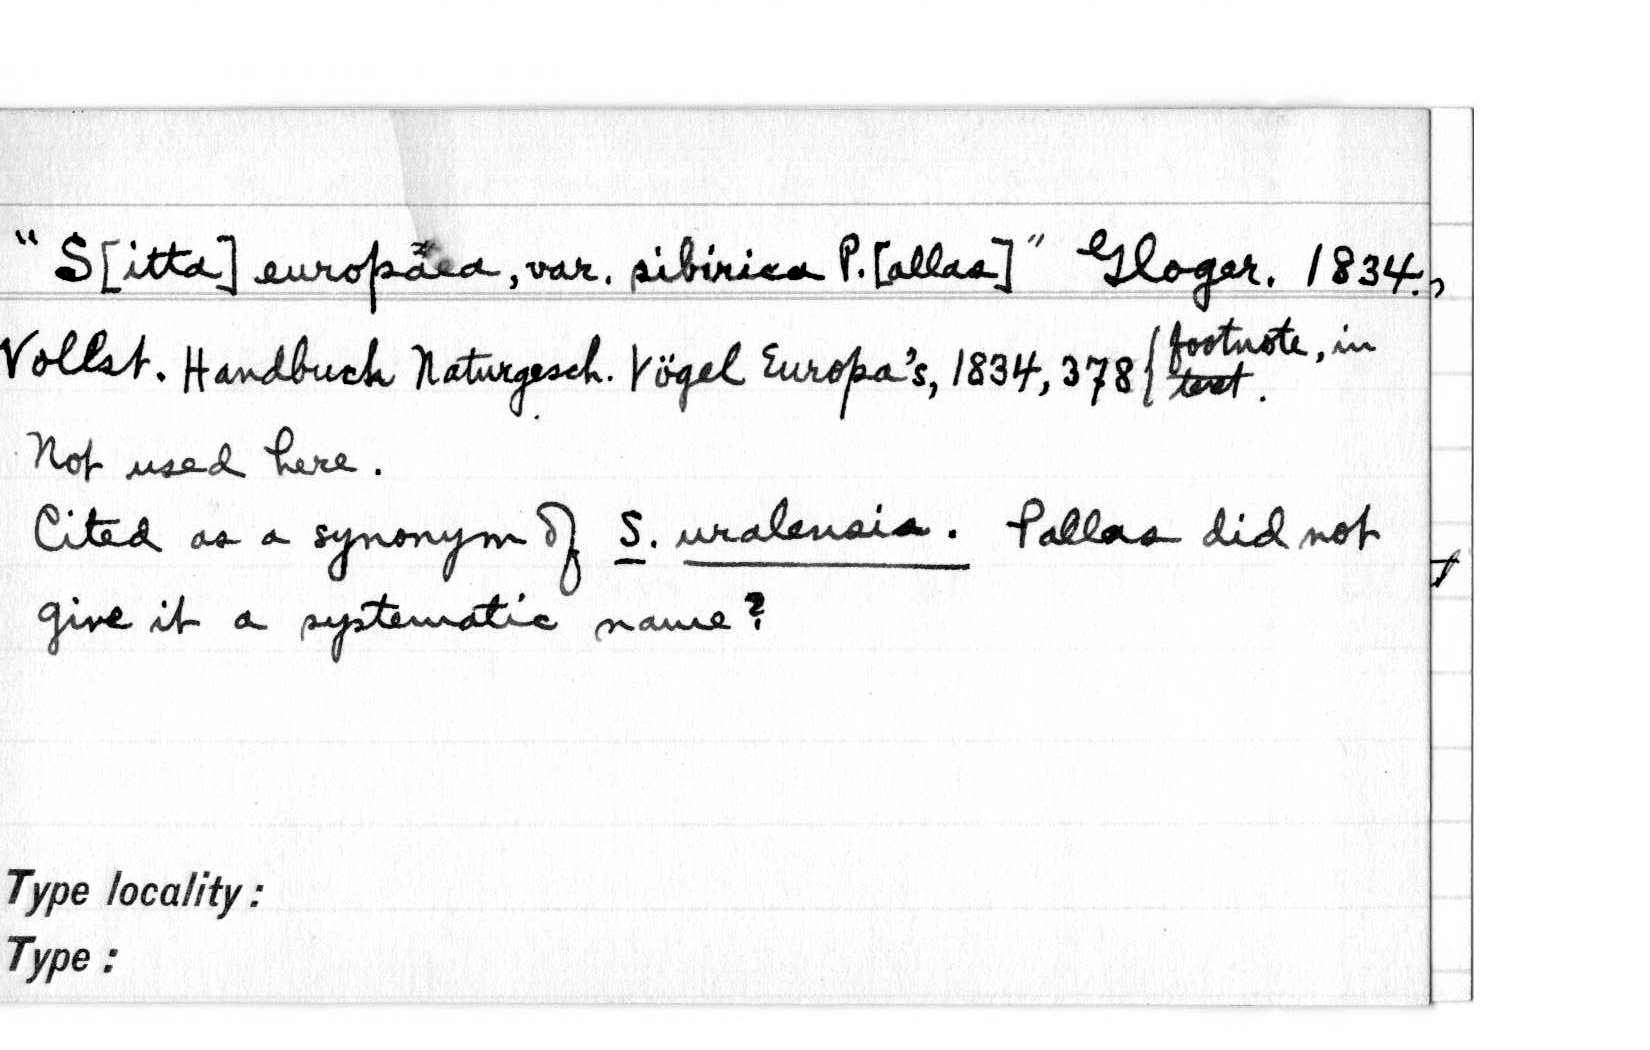 "S[itta] europäea, var. sibirica P.[allas]" Gloger. 1834.
Vollst. Handbuch Naturgesch. Vögel Europa's, 1834, 378 { footnote, in text.
Not used here.
Cited as a synonym of S. uralensis. Pallas did not
give it a systematic name?
Type locality:
Type: